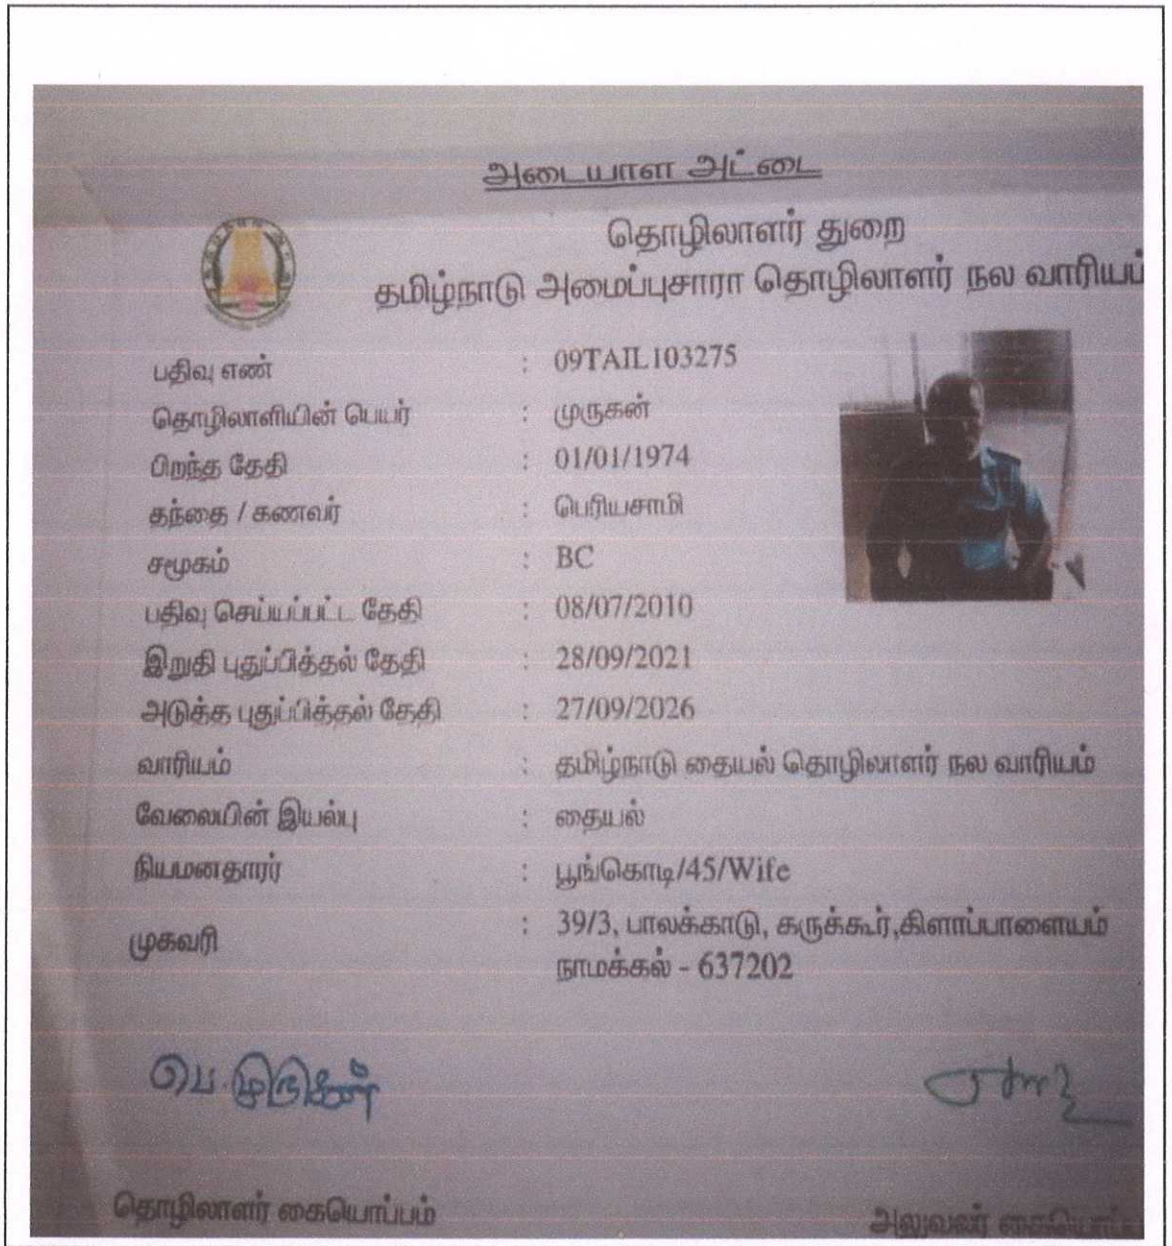 அடையாள அட்டை
தொழிலாளர் துறை
தமிழ்நாடு அமைப்புசாரா தொழிலாளர் நல வாரியம்
பதிவு எண் : 09TAIL103275
தொழிலாளியின் பெயர் : முருகன்
பிறந்த தேதி : 01/01/1974
தந்தை / கணவர் : பெரியசாமி
சமூகம் : BC
பதிவு செய்யப்பட்ட தேதி : 08/07/2010
இறுதி புதுப்பித்தல் தேதி : 28/09/2021
அடுத்த புதுப்பித்தல் தேதி : 27/09/2026
வாரியம் : தமிழ்நாடு தையல் தொழிலாளர் நல வாரியம்
வேலையின் இயல்பு : தையல்
நியமனதாரர் : பூங்கொடி/45/Wife
முகவரி : 39/3, பாலக்காடு, கருக்கூர்,கிளாப்பாளையம்
நாமக்கல் - 637202
பெ. முருகன்
தொழிலாளர் கையொப்பம்
அலுவலர்